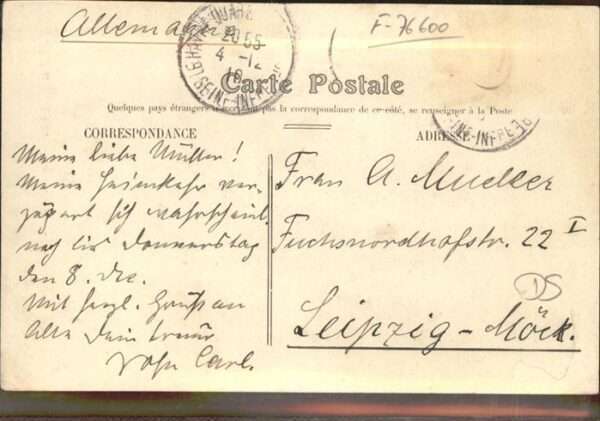 Allemagne
F-76600
LE HAVRE-QUAI
20 55
4 -12
10
SEINE-INFRE
Carte Postale
Quelques pays étrangers n'acceptent pas la correspondance de ce côté, se renseigner à la Poste
CORRESPONDANCE
ADRESSE
INE-INFRE
Meine liebe Mutter!
Meine Heimkehr ver-
zögert sich wahrscheinl.
noch bis Donnerstag
den 8. Dec.
Mit herzl. Gruß an
Alle Dein treuer
Sohn Carl.
Frau A. Mueller
Fuchsnordhofstr. 22 I
DS
Leipzig-Möck.